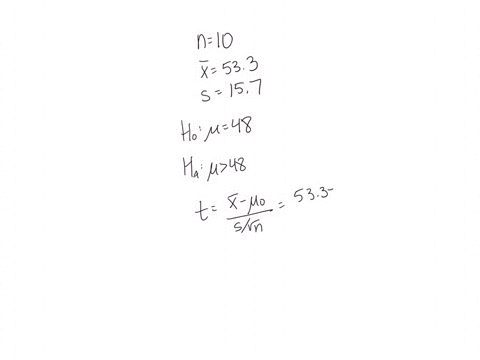 n=10
x̄=53.3
s=15.7
H₀: μ=48
Hₐ: μ>48
t= x̄-μ₀ / s/√n = 53.3-